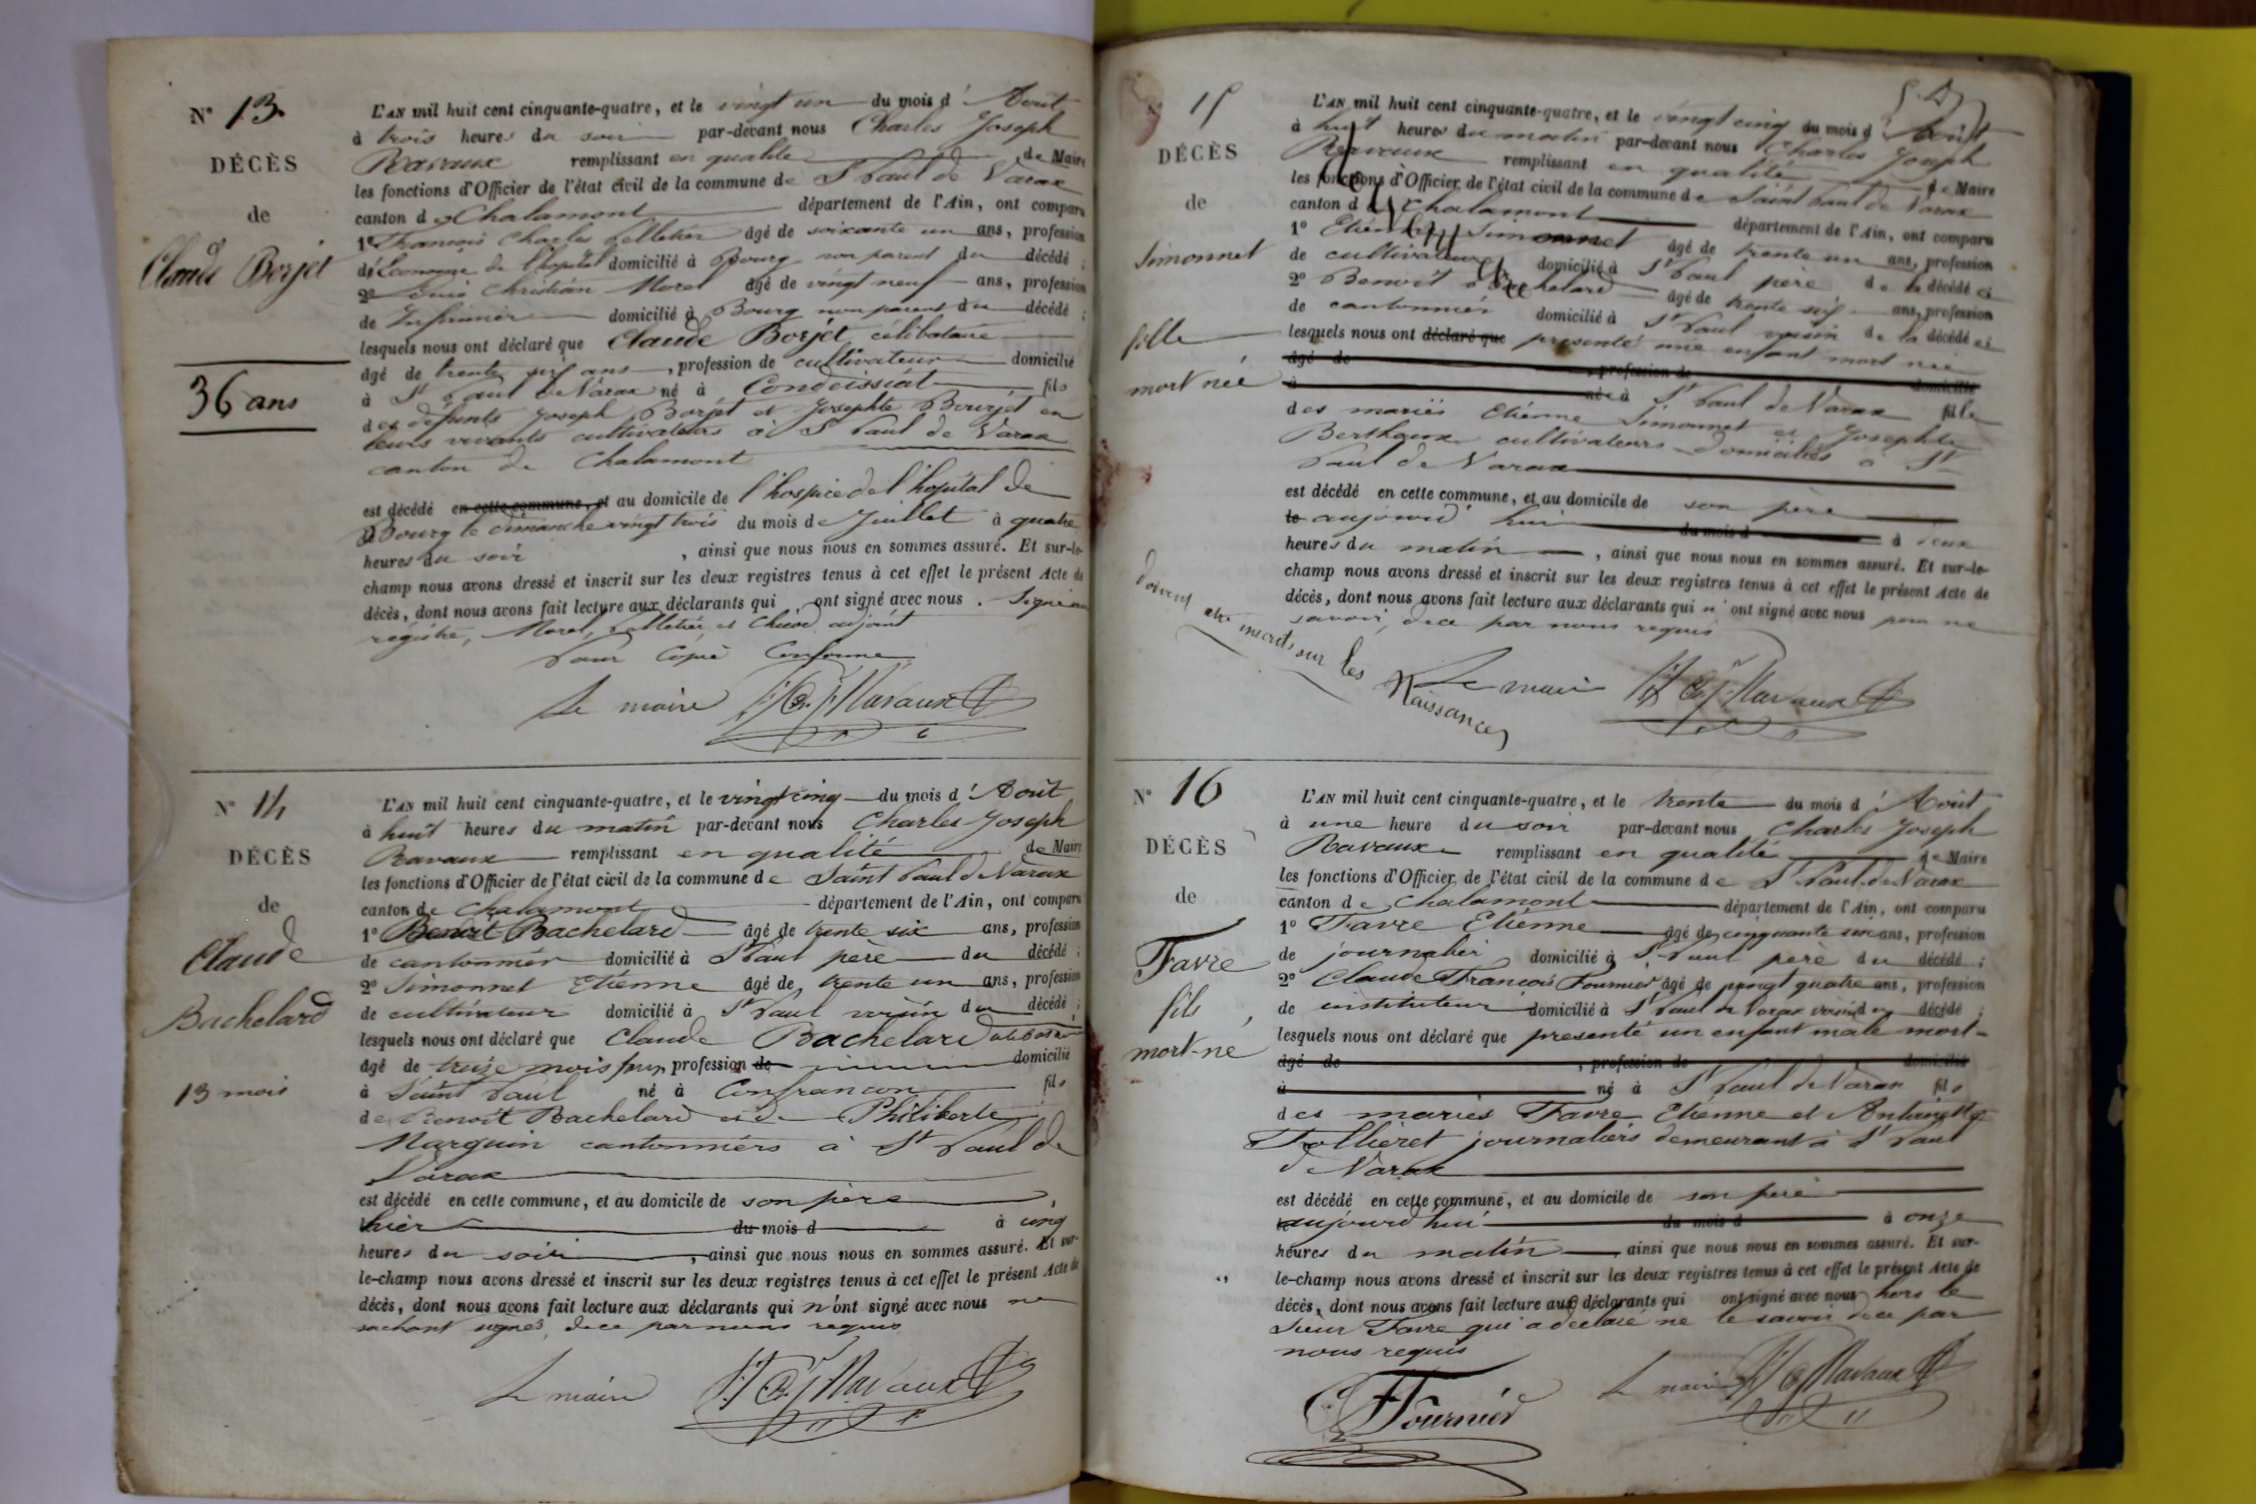 N° 13
DÉCÈS
de
Claude Borjét
36 ans
L'AN mil huit cent cinquante-quatre, et le vingt un du mois d'Août
à trois heures du soir par-devant nous Charles Joseph
Ravaux remplissant en qualité de Maire
les fonctions d'Officier de l'état civil de la commune de St Paul de Varax
canton de Chalamont département de l'Ain, ont comparu
1° François Charles Pelletier âgé de soixante un ans, profession
d'Econome de l'hopital domicilié à Bourg non parent du décédé ;
2° Louis Christian Morel âgé de vingt neuf ans, profession
de Infirmier domicilié à Bourg non parent du décédé ;
lesquels nous ont déclaré que Claude Borjét célibataire
âgé de trente six ans, profession de cultivateur domicilié
à St Paul de Varax né à Condeissiat fils
des défunts Joseph Borjét et Josephte Bourjét en
leurs vivants cultivateurs à St Paul de Varax
canton de Chalamont
est décédé en cette commune, et au domicile de l'hospice de l'hôpital de
Bourg le dimanche vingt trois du mois de Juillet à quatre
heures du soir , ainsi que nous nous en sommes assuré. Et sur-le-
champ nous avons dressé et inscrit sur les deux registres tenus à cet effet le présent Acte de
décès, dont nous avons fait lecture aux déclarants qui ont signé avec nous. Signé au
registre, Morel, Pelletier et adjoint
Pour Copie Conforme
Le maire Ravaux
N° 14
DÉCÈS
de
Claude
Bachelard
13 mois
L'AN mil huit cent cinquante-quatre, et le vingt cinq du mois d'Août
à huit heures du matin par-devant nous Charles Joseph
Ravaux remplissant en qualité de Maire
les fonctions d'Officier de l'état civil de la commune de Saint Paul de Varax
canton de Chalamont département de l'Ain, ont comparu
1° Benoit Bachelard âgé de trente six ans, profession
de cantonnier domicilié à St Paul père du décédé ;
2° Simonnet Etienne âgé de trente un ans, profession
de cultivateur domicilié à St Paul voisin du décédé ;
lesquels nous ont déclaré que Claude Bachelard
âgé de treize mois profession de domicilié
à Saint Paul né à Confrançon fils
de Benoit Bachelard et de Philiberte
Marguin cantonniers à St Paul de
Varax
est décédé en cette commune, et au domicile de son père ,
hier du mois d à cinq
heures du soir , ainsi que nous nous en sommes assuré. Et sur-
le-champ nous avons dressé et inscrit sur les deux registres tenus à cet effet le présent Acte de
décès, dont nous avons fait lecture aux déclarants qui n'ont signé avec nous ne
sachant signer, de ce par nous requis
Le maire Ravaux
15
DÉCÈS
de
Simonnet
fille
mort née
doivent être inscrits sur les
Naissances
L'AN mil huit cent cinquante-quatre, et le vingt cinq du mois d'Août
à huit heures du matin par-devant nous Charles Joseph
Ravaux remplissant en qualité de Maire
les fonctions d'Officier de l'état civil de la commune de Saint Paul de Varax
canton de Chalamont département de l'Ain, ont comparu
1° Etienne Simonnet âgé de trente un ans, profession
de cultivateur domicilié à St Paul père de la décédé
2° Benoit Bachelard âgé de trente six ans, profession
de cantonnier domicilié à St Paul voisin de la décédé
lesquels nous ont déclaré que présenté une enfant mort née
âgé de , profession de domicilié
à né à St Paul de Varax fille
des mariés Etienne Simonnet et Josephte
Berthaux cultivateurs domiciliés à St
Paul de Varax
est décédé en cette commune, et au domicile de son père
le aujourd'hui du mois d à deux
heures du matin , ainsi que nous nous en sommes assuré. Et sur-le-
champ nous avons dressé et inscrit sur les deux registres tenus à cet effet le présent Acte de
décès, dont nous avons fait lecture aux déclarants qui n'ont signé avec nous pour ne
savoir, de ce par nous requis
Le maire Ravaux
N° 16
DÉCÈS
de
Favre
fils
mort-né
L'AN mil huit cent cinquante-quatre, et le trente du mois d'Août
à une heure du soir par-devant nous Charles Joseph
Ravaux remplissant en qualité de Maire
les fonctions d'Officier de l'état civil de la commune de St Paul de Varax
canton de Chalamont département de l'Ain, ont comparu
1° Favre Etienne âgé de cinquante ans, profession
de journalier domicilié à St Paul père du décédé ;
2° Claude François Fournier âgé de vingt quatre ans, profession
de instituteur domicilié à St Paul de Varax voisin du décédé ;
lesquels nous ont déclaré que présenté un enfant male mort-
âgé de , profession de domicilié
à né à St Paul de Varax fils
des mariés Favre Etienne et Antoinette
Tollieret journaliers demeurant à St Paul
de Varax
est décédé en cette commune, et au domicile de son père
le aujourd'hui du mois d à onze
heures du matin ainsi que nous nous en sommes assuré. Et sur-
le-champ nous avons dressé et inscrit sur les deux registres tenus à cet effet le présent Acte de
décès, dont nous avons fait lecture aux déclarants qui ont signé avec nous hors le
Sieur Favre qui a déclaré ne le savoir de ce par
nous requis
Fournier
Le maire Ravaux